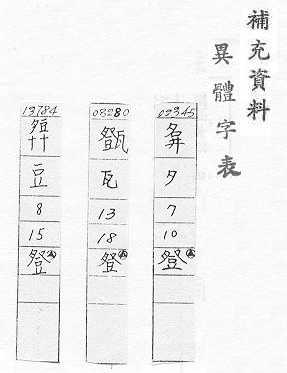 補充資料
異體字表
03345
夕
7
10
登
08280
瓦
13
18
登
13784
豆
8
15
登